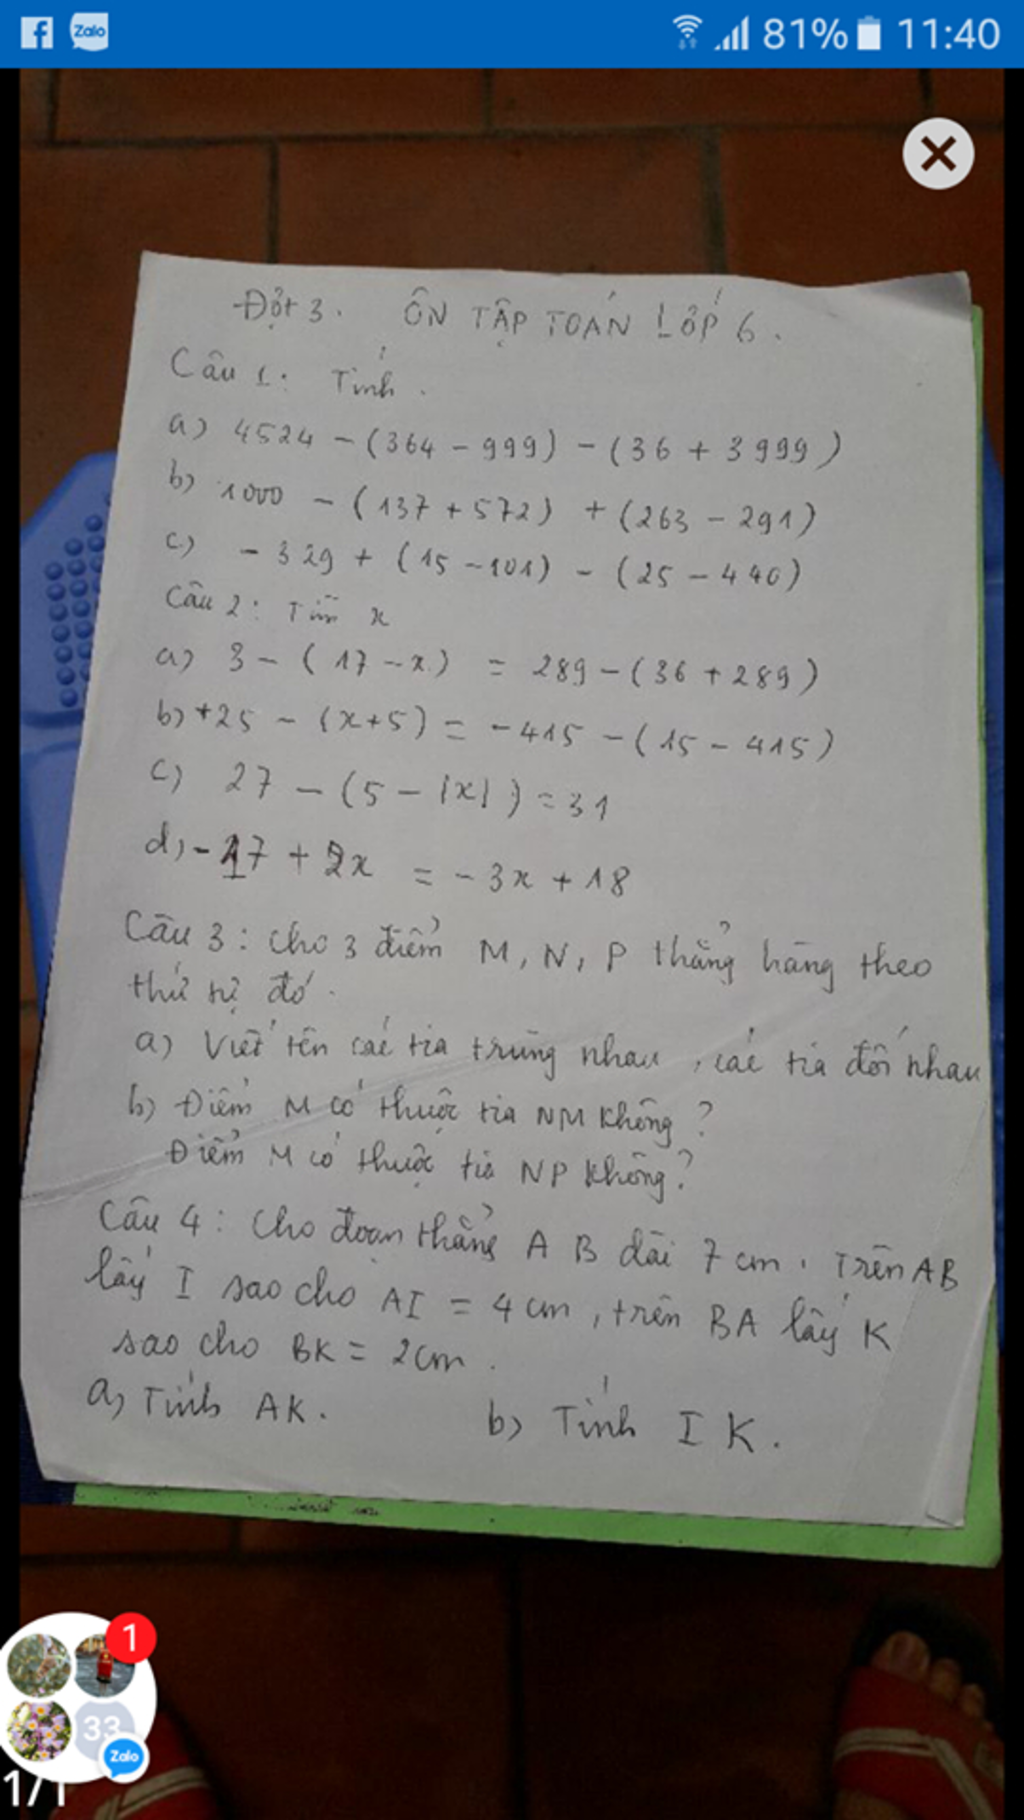 Zalo
81% 11:40
Đợt 3. ÔN TẬP TOÁN LỚP 6.
Câu 1: Tính.
a) 4524 - (364 - 999) - (36 + 3999)
b) 1000 - (137 + 572) + (263 - 291)
c) - 329 + (15 - 101) - (25 - 440)
Câu 2: Tìm x
a) 3 - (17 - x) = 289 - (36 + 289)
b) +25 - (x + 5) = - 415 - (15 - 415)
c) 27 - (5 - |x|) = 31
d) - 17 + 2x = - 3x + 18
Câu 3: Cho 3 điểm M, N, P thẳng hàng theo
thứ tự đó.
a) Viết tên các tia trùng nhau, các tia đối nhau
b) Điểm M có thuộc tia NM không?
Điểm M có thuộc tia NP không?
Câu 4: Cho đoạn thẳng AB dài 7 cm. Trên AB
lấy I sao cho AI = 4 cm, trên BA lấy K
sao cho BK = 2cm.
a) Tính AK. b) Tính IK.
1
33
Zalo
1/1